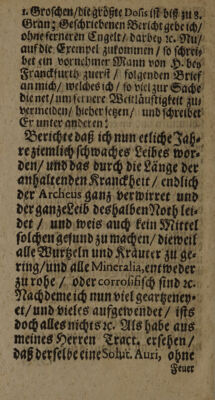 1. Groschen/ die gröste Dosis ist biß zu 8.
Gran; Geschriebenen Bericht gebe ich/
ohne ferneren Engelt/ darbey ꝛc. Nu/
auf die Exempel zukommen/ so schrei-
bet ein vornehmer Mann von H. bey
Franckfurth zuerst/ folgenden Brieff
an mich/ welches ich/ so viel zur Sache
dienet/ um fernere Weitläuftigkeit zu
vermeiden/ hieher setzen/ und schreibet
Er unter andern:
Berichte daß ich nun etliche Jah-
re ziemlich schwaches Leibes wor-
den/ und das durch die Länge der
anhaltenden Kranckheit/ endlich
der Archeus ganz verwirret und
der ganze Leib deshalben Noth lei-
det/ und weis auch kein Mittel
solchen gesund zu machen/ dieweil
alle Wurtzeln und Kräuter zu ge-
ring/ und alle Mineralia, entweder
zu rohe/ oder corrosifisch sind ꝛc.
Nachdeme ich nun viel geartzeney-
et/ und vieles aufgewendet/ ists
doch alles nichts ꝛc. Als habe aus
meines Herren Tract. ersehen/
daß derselbe eine Solut. Auri, ohne
Feuer